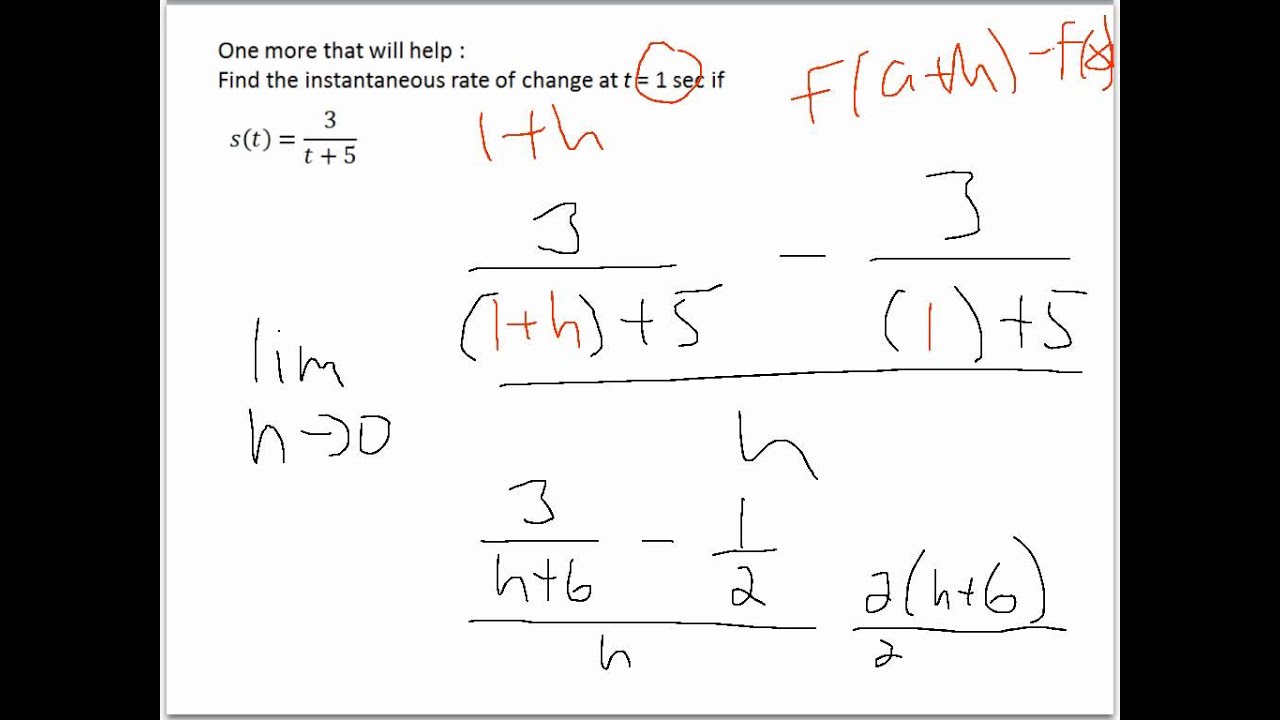 One more that will help :
Find the instantaneous rate of change at t = 1 sec if
s(t) = 3 / (t + 5)
1+h
F(a+h) - f(x)
3 / ((1+h)+5) - 3 / ((1)+5)
lim
h→0
h
3 / (h+6) - 1 / 2
h
2(h+6)
2